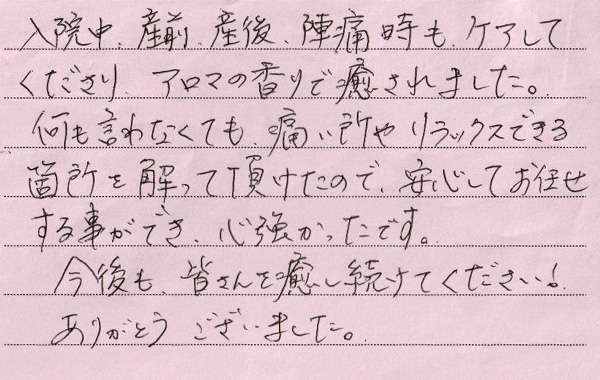 入院中、産前、産後、陣痛時も、ケアして
くださり、アロマの香りで癒されました。
何も言わなくても、痛い所やリラックスできる
箇所を解って頂けたので、安心してお任せ
する事ができ、心強かったです。
今後も、皆さんを癒し続けてください!
ありがとうございました。